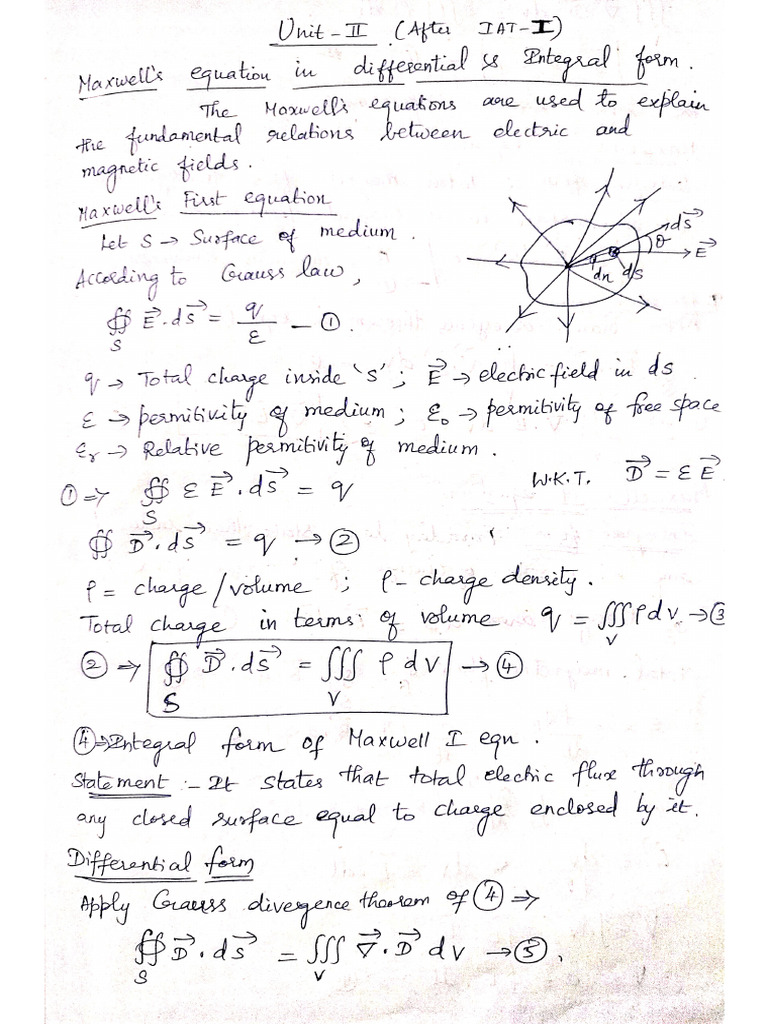 Unit - II (After IAT-I)
Maxwell's equation in differential & Integral form.
The Maxwell's equations are used to explain
the fundamental relations between electric and
magnetic fields.
Maxwell's First equation
Let S → Surface of medium.
According to Gauss law,
∯_S E⃗ . dS⃗ = q/ε — ①.
dS⃗
θ
E⃗
ds
q → Total charge inside 'S' ; E⃗ → electric field in ds
ε → permitivity of medium ; ε₀ → permitivity of free space
εᵣ → Relative permitivity of medium.
① ⇒ ∯_S ε E⃗ . dS⃗ = q W.K.T. D⃗ = ε E⃗
∯ D⃗ . dS⃗ = q → ②
ρ = charge / volume ; ρ - charge density.
Total charge in terms of volume q = ∭_V ρ dv. → ③
② ⇒ ∯_S D⃗ . dS⃗ = ∭_V ρ dV → ④
④ ⇒ Integral form of Maxwell I eqn.
Statement :- It states that total electric flux through
any closed surface equal to charge enclosed by it.
Differential form
Apply Gauss divergence theorem of ④ ⇒
∯_S D⃗ . dS⃗ = ∭_V ∇⃗ . D⃗ dV → ⑤.